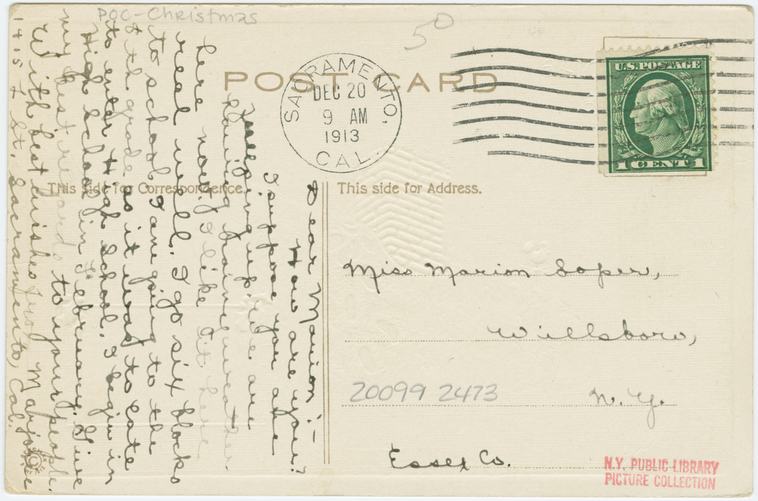 POC-Christmas
50
POST CARD
SACRAMENTO,
DEC 20
9 AM
1913
CAL.
U.S. POSTAGE
1 CENT 1
This side for Correspondence.
This side for Address.
Dear Marion:-
How are you?
I suppose you are
up. We are
having weather
here now. I like it here
real well. I go six blocks
to school. I am going to the
8th grade as it was to late
to enter High School. I begin in
High School in February. Give
my best regards to your people.
With best wishes from Marjorie
1415 St. Sacramento, Cal.
Miss Marion Soper,
Willsboro,
N.Y.
Essex Co.
20099 2473
N.Y. PUBLIC LIBRARY
PICTURE COLLECTION